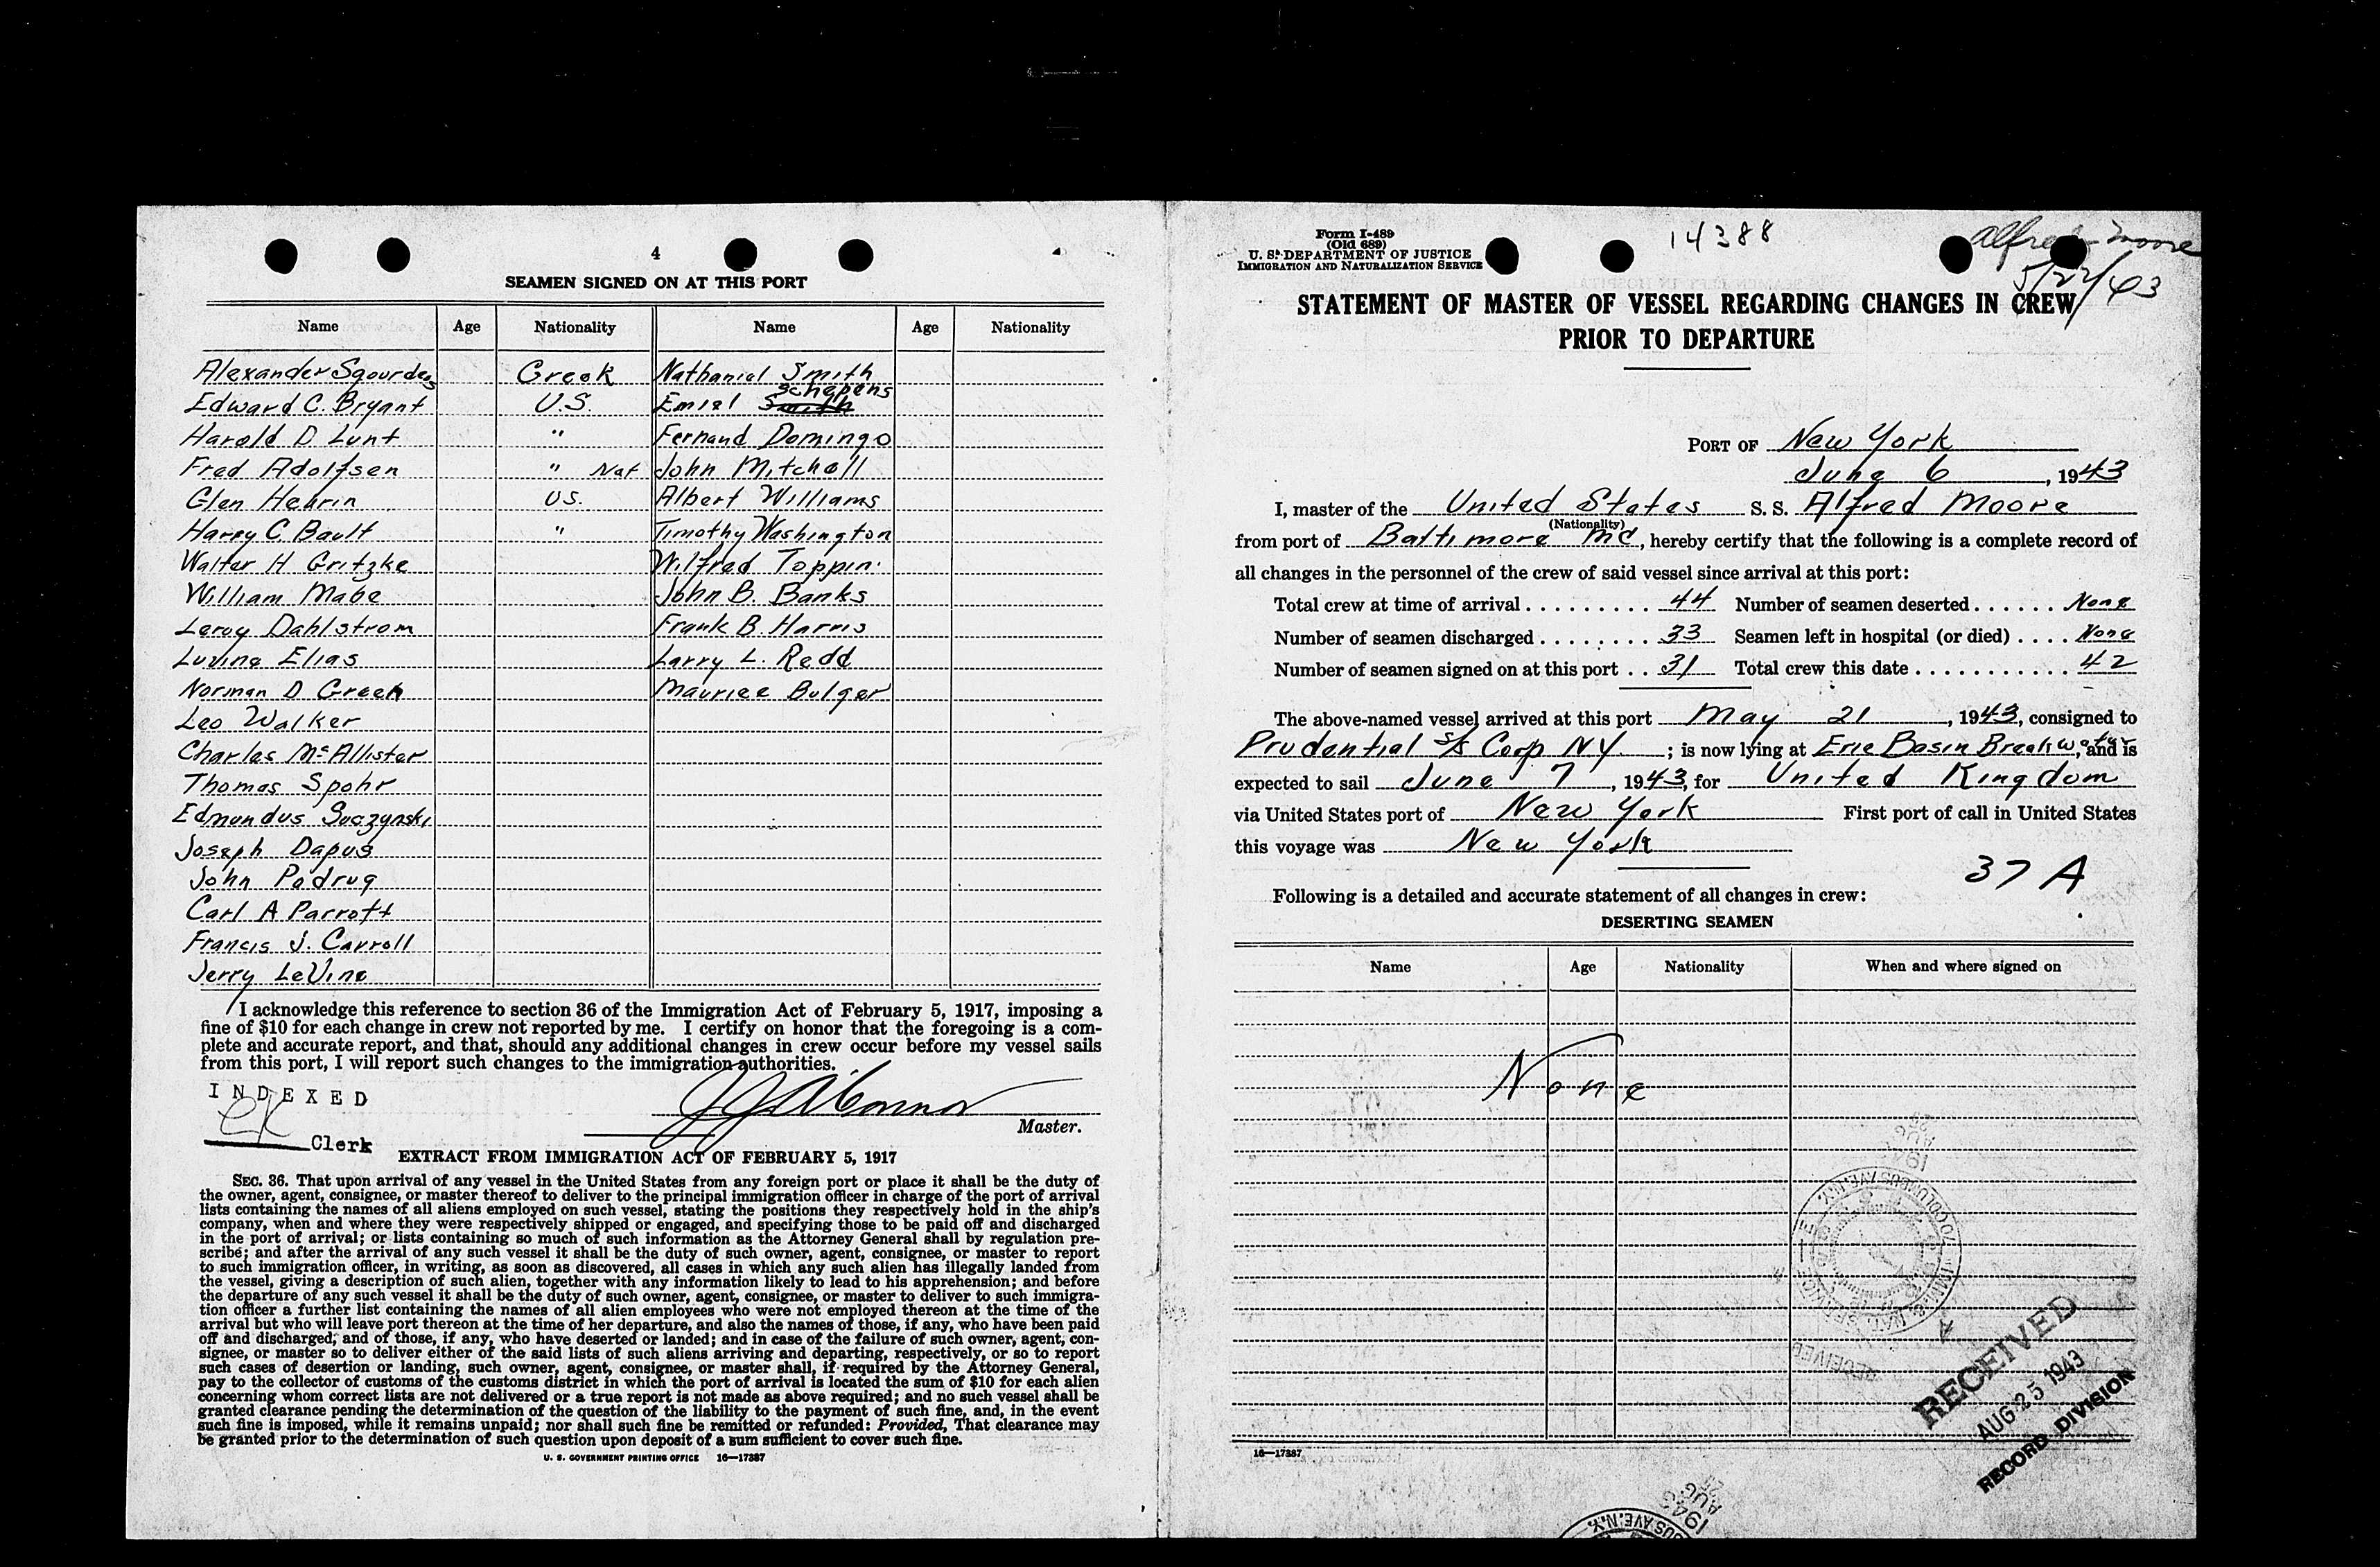 4
SEAMEN SIGNED ON AT THIS PORT
Name Age Nationality Name Age Nationality
Alexander Sgourdes Greek Nathanial Smith
Edward C. Bryant U.S. Emiel Schepens Smith
Harold D Lunt " Fernand Domingo
Fred Adolfsen " Nat John Mitchell
Glen Hearin US. Albert Williams
Harry C. Bault " Timothy Washington
Walter H Gritzke Wilfred Toppin
William Mabe John B. Banks
Leroy Dahlstrom Frank B. Harris
Luvine Elias Larry L. Redd
Norman D Green Maurice Bulger
Leo Walker
Charles McAllister
Thomas Spohr
Edmundus Suczynski
Joseph Dapus
John Podrug
Carl A Parrott
Francis J. Carroll
Jerry LeVine
I acknowledge this reference to section 36 of the Immigration Act of February 5, 1917, imposing a
fine of $10 for each change in crew not reported by me. I certify on honor that the foregoing is a com-
plete and accurate report, and that, should any additional changes in crew occur before my vessel sails
from this port, I will report such changes to the immigration authorities.
INDEXED
JJ O'Connor
Clerk
Master.
EXTRACT FROM IMMIGRATION ACT OF FEBRUARY 5, 1917
SEC. 36. That upon arrival of any vessel in the United States from any foreign port or place it shall be the duty of
the owner, agent, consignee, or master thereof to deliver to the principal immigration officer in charge of the port of arrival
lists containing the names of all aliens employed on such vessel, stating the positions they respectively hold in the ship's
company, when and where they were respectively shipped or engaged, and specifying those to be paid off and discharged
in the port of arrival; or lists containing so much of such information as the Attorney General shall by regulation pre-
scribe; and after the arrival of any such vessel it shall be the duty of such owner, agent, consignee, or master to report
to such immigration officer, in writing, as soon as discovered, all cases in which any such alien has illegally landed from
the vessel, giving a description of such alien, together with any information likely to lead to his apprehension; and before
the departure of any such vessel it shall be the duty of such owner, agent, consignee, or master to deliver to such immigra-
tion officer a further list containing the names of all alien employees who were not employed thereon at the time of the
arrival but who will leave port thereon at the time of her departure, and also the names of those, if any, who have been paid
off and discharged, and of those, if any, who have deserted or landed; and in case of the failure of such owner, agent, con-
signee, or master so to deliver either of the said lists of such aliens arriving and departing, respectively, or so to report
such cases of desertion or landing, such owner, agent, consignee, or master shall, if required by the Attorney General,
pay to the collector of customs of the customs district in which the port of arrival is located the sum of $10 for each alien
concerning whom correct lists are not delivered or a true report is not made as above required; and no such vessel shall be
granted clearance pending the determination of the question of the liability to the payment of such fine, and, in the event
such fine is imposed, while it remains unpaid; nor shall such fine be remitted or refunded: Provided, That clearance may
be granted prior to the determination of such question upon deposit of a sum sufficient to cover such fine.
U. S. GOVERNMENT PRINTING OFFICE 16—17387
Form I-489
(Old 689)
U. S. DEPARTMENT OF JUSTICE
IMMIGRATION AND NATURALIZATION SERVICE
14388
Alfred Moore
5/22/43
STATEMENT OF MASTER OF VESSEL REGARDING CHANGES IN CREW
PRIOR TO DEPARTURE
PORT OF New York
June 6, 1943
I, master of the United States S. S. Alfred Moore
(Nationality)
from port of Baltimore Md, hereby certify that the following is a complete record of
all changes in the personnel of the crew of said vessel since arrival at this port:
Total crew at time of arrival 44 Number of seamen deserted None
Number of seamen discharged 33 Seamen left in hospital (or died) None
Number of seamen signed on at this port 31 Total crew this date 42
The above-named vessel arrived at this port May 21, 1943, consigned to
Prudential S/S Corp NY; is now lying at Erie Basin Breakwater, and is
expected to sail June 7, 1943, for United Kingdom
via United States port of New York First port of call in United States
this voyage was New York
37 A
Following is a detailed and accurate statement of all changes in crew:
DESERTING SEAMEN
Name Age Nationality When and where signed on
None
RECEIVED
AUG 25 1943
RECORD DIVISION
16—17387